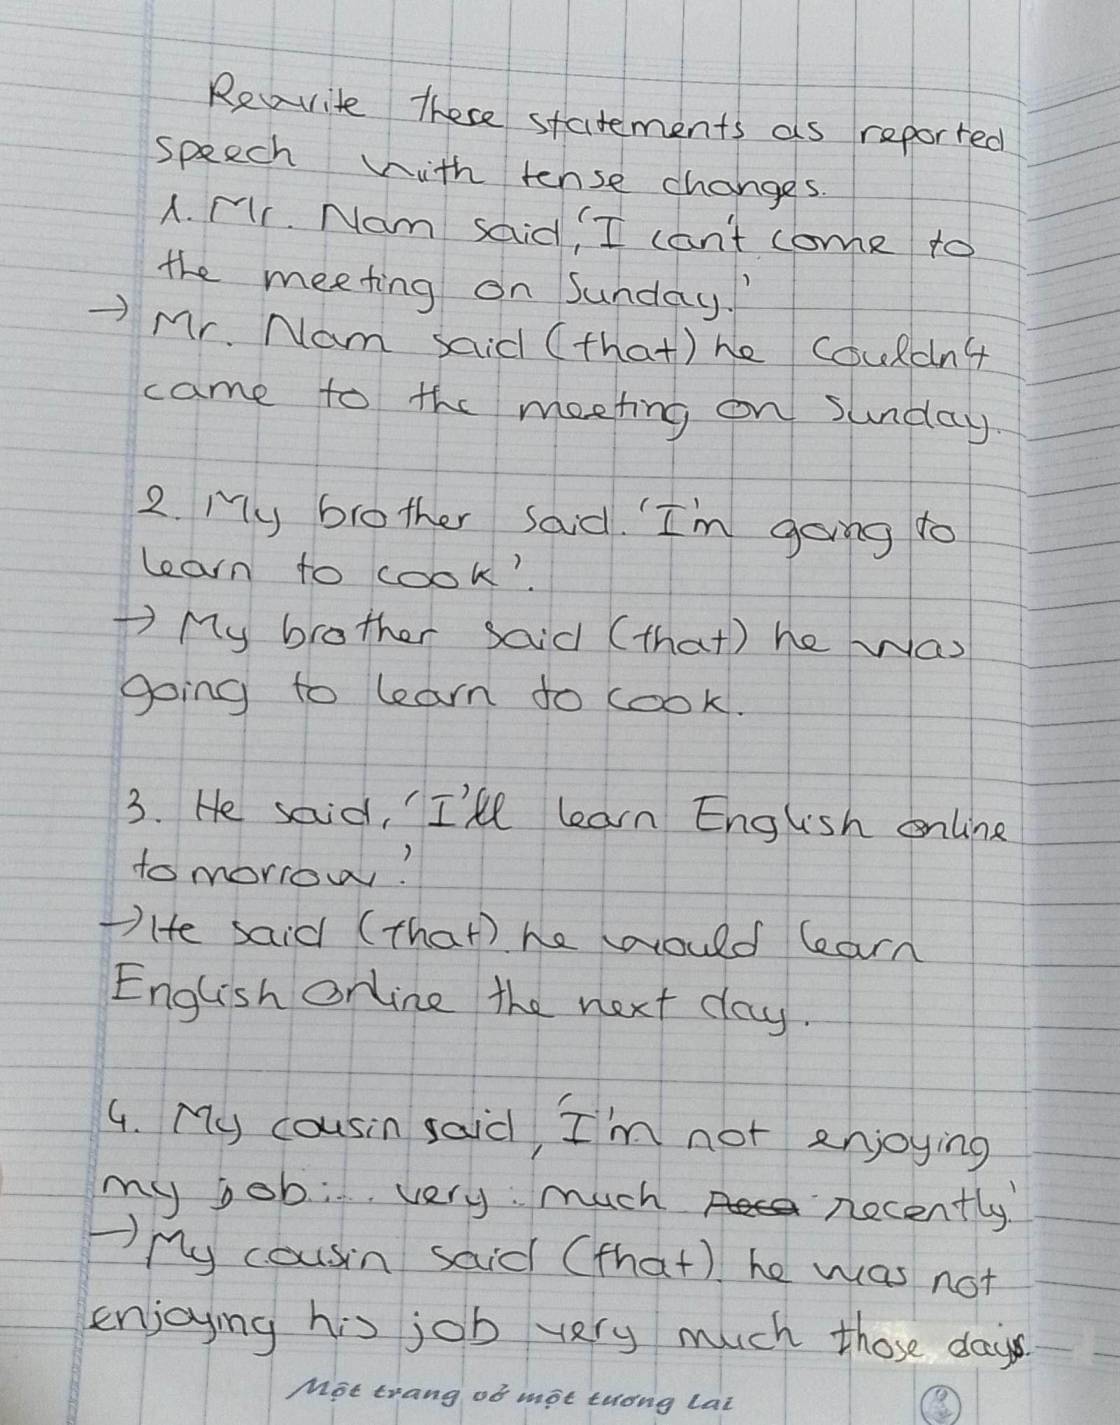 Rewrite these statements as reported
speech with tense changes.
1. Mr. Nam said, 'I can't come to
the meeting on Sunday.'
→ Mr. Nam said (that) he couldn't
came to the meeting on Sunday.
2. My brother said. 'I'm going to
learn to cook'.
→ My brother said (that) he was
going to learn to cook.
3. He said, 'I'll learn English online
tomorrow.'
→ He said (that) he would learn
English online the next day.
4. My cousin said, 'I'm not enjoying
my job very much recently.'
→ My cousin said (that) he was not
enjoying his job very much those days.
Một trang vở một tương lai